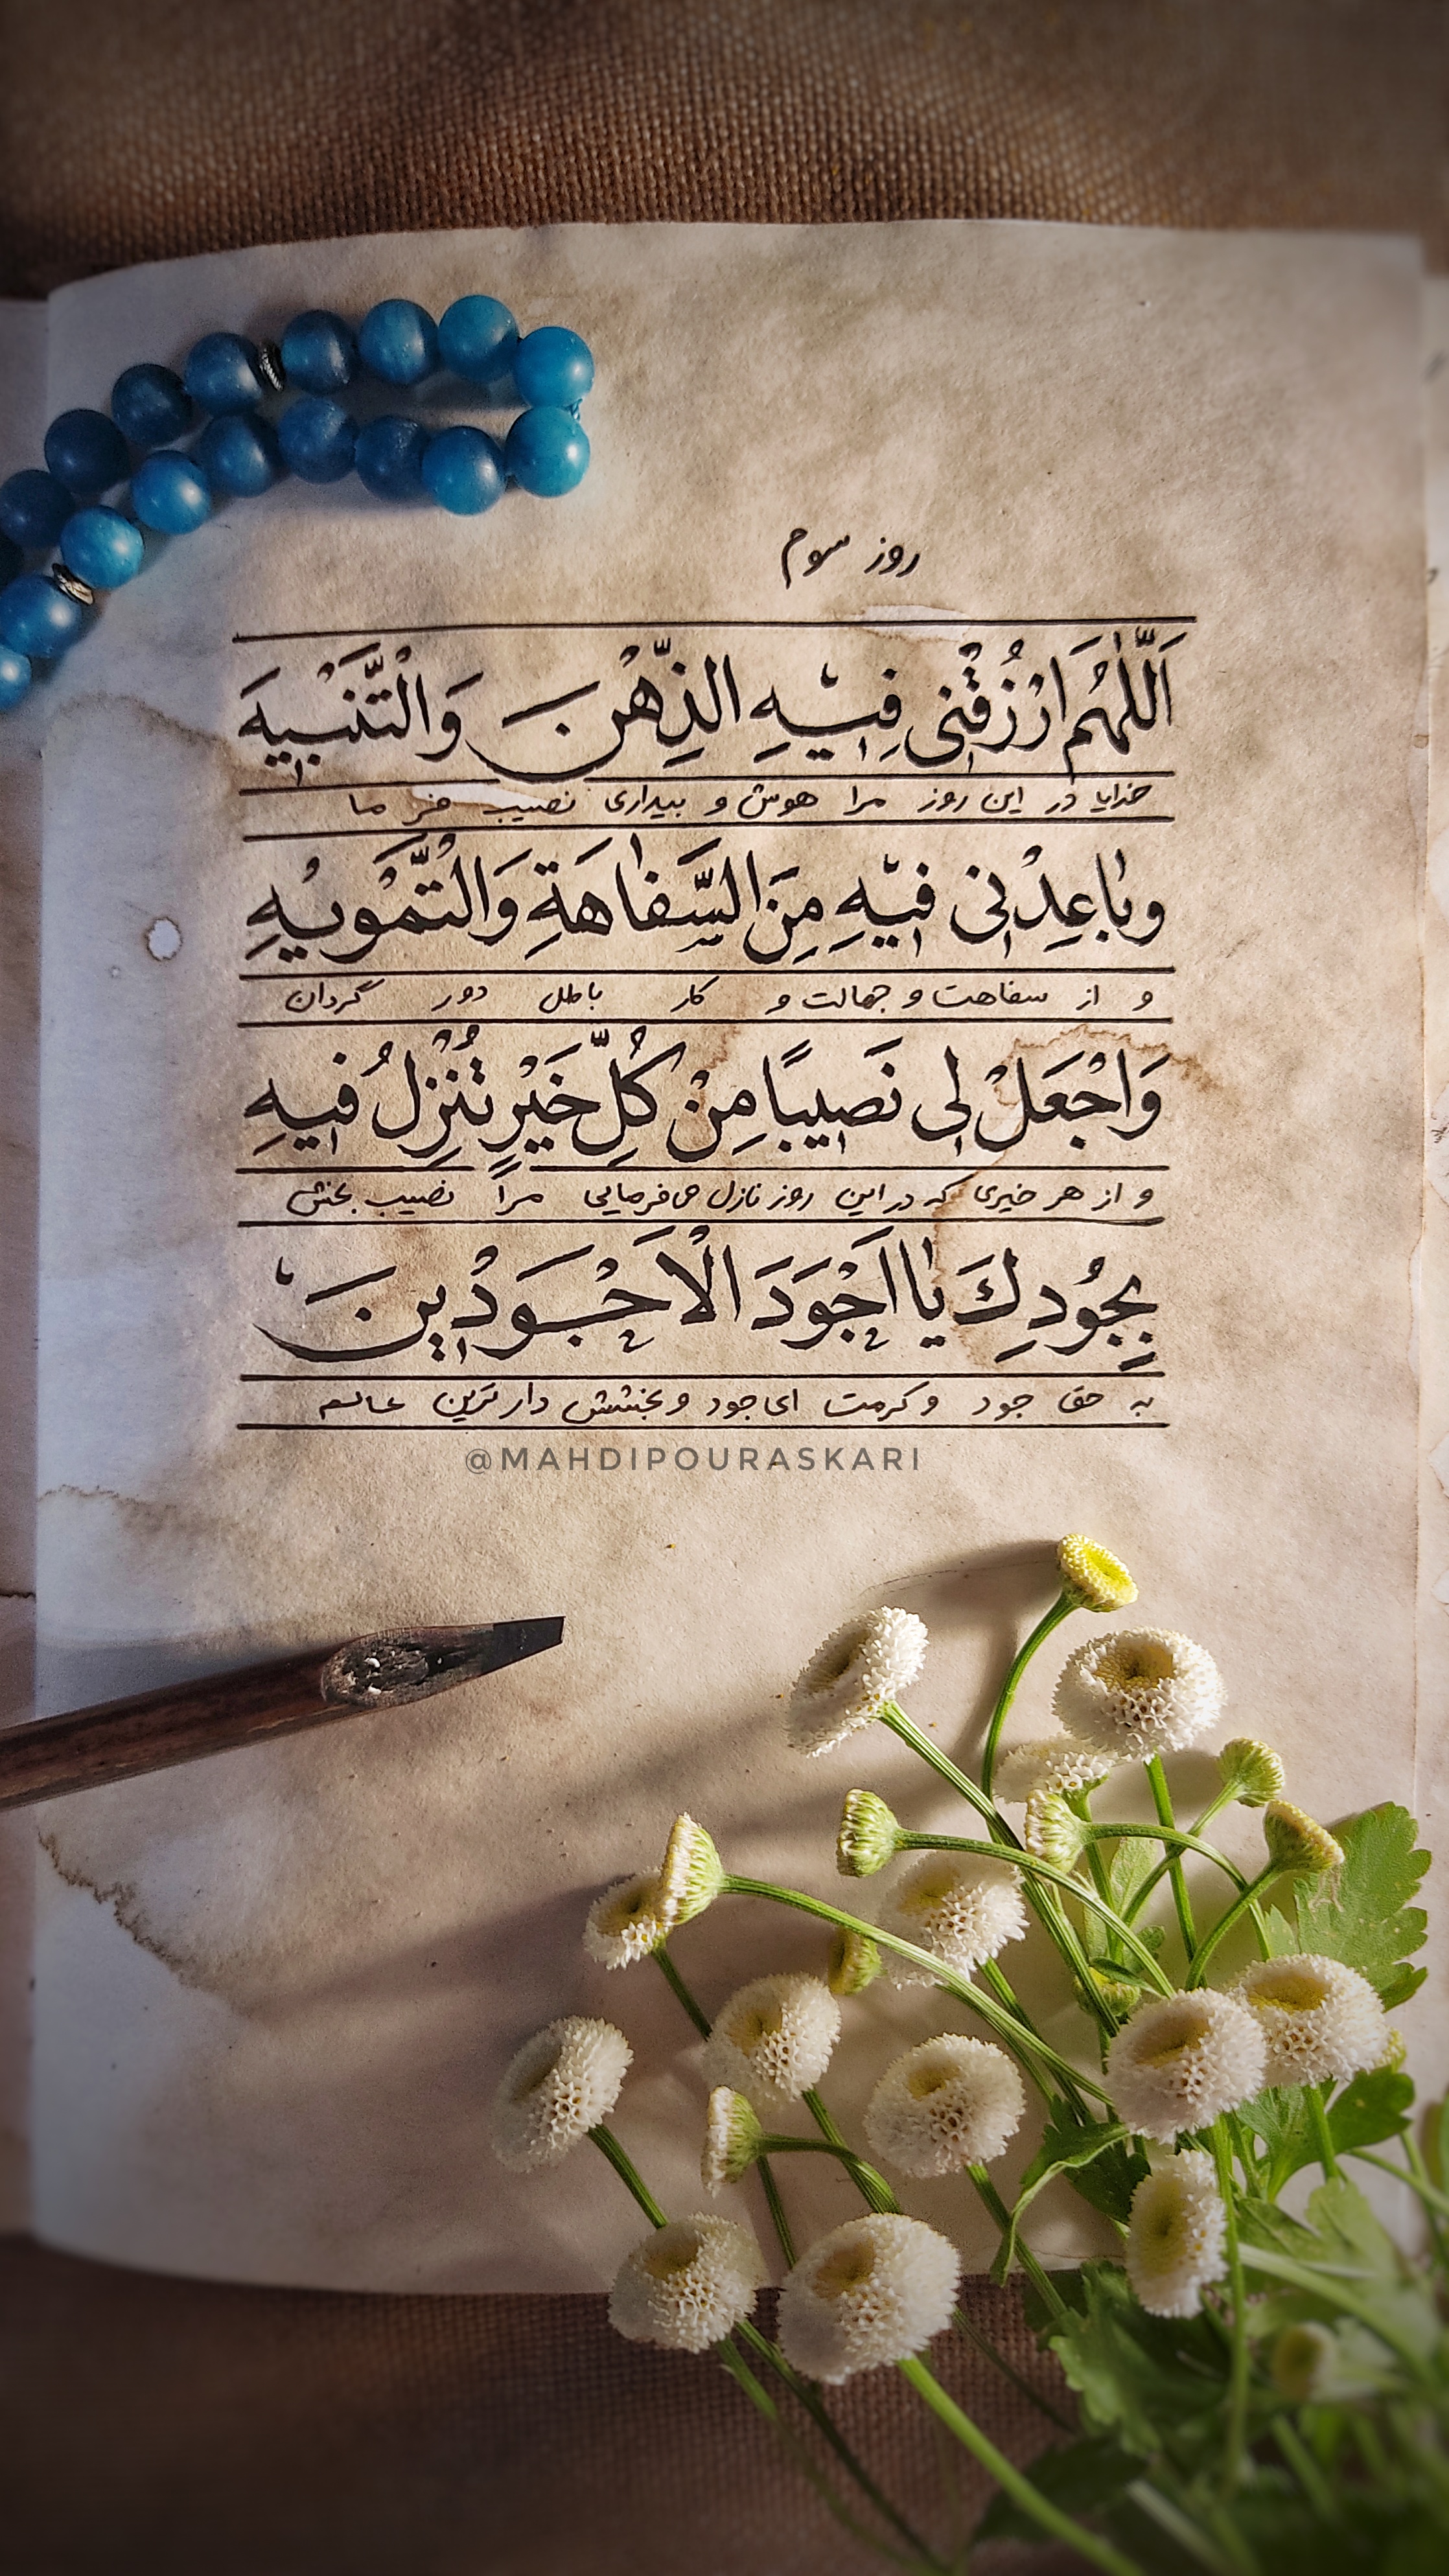 روز سوم
اَللّٰهُمَّ ارْزُقْنی فیٖهِ الذِّهْنَ وَالْتَّنْبیٖهَ
خدایا در این روز مرا هوش و بیداری نصیب فرما
وَبٰاعِدْنی فیٖهِ مِنَ السَّفٰاهَةِ وَالْتَّمْویٖهِ
و از سفاهت و جهالت و کار باطل دور گردان
وَاجْعَلْ لی نَصیبًا مِنْ کُلِّ خَیْرٍ تُنْزِلُ فیهِ
و از هر خیری که در این روز نازل می‌فرمایی مرا نصیب بخش
بِجُودِكَ یٰا اَجْوَدَ الْاَجْوَدْینَ
به حق جود و کرمت ای جود و بخشش دارترین عالم
@MAHDIPOURASKARI